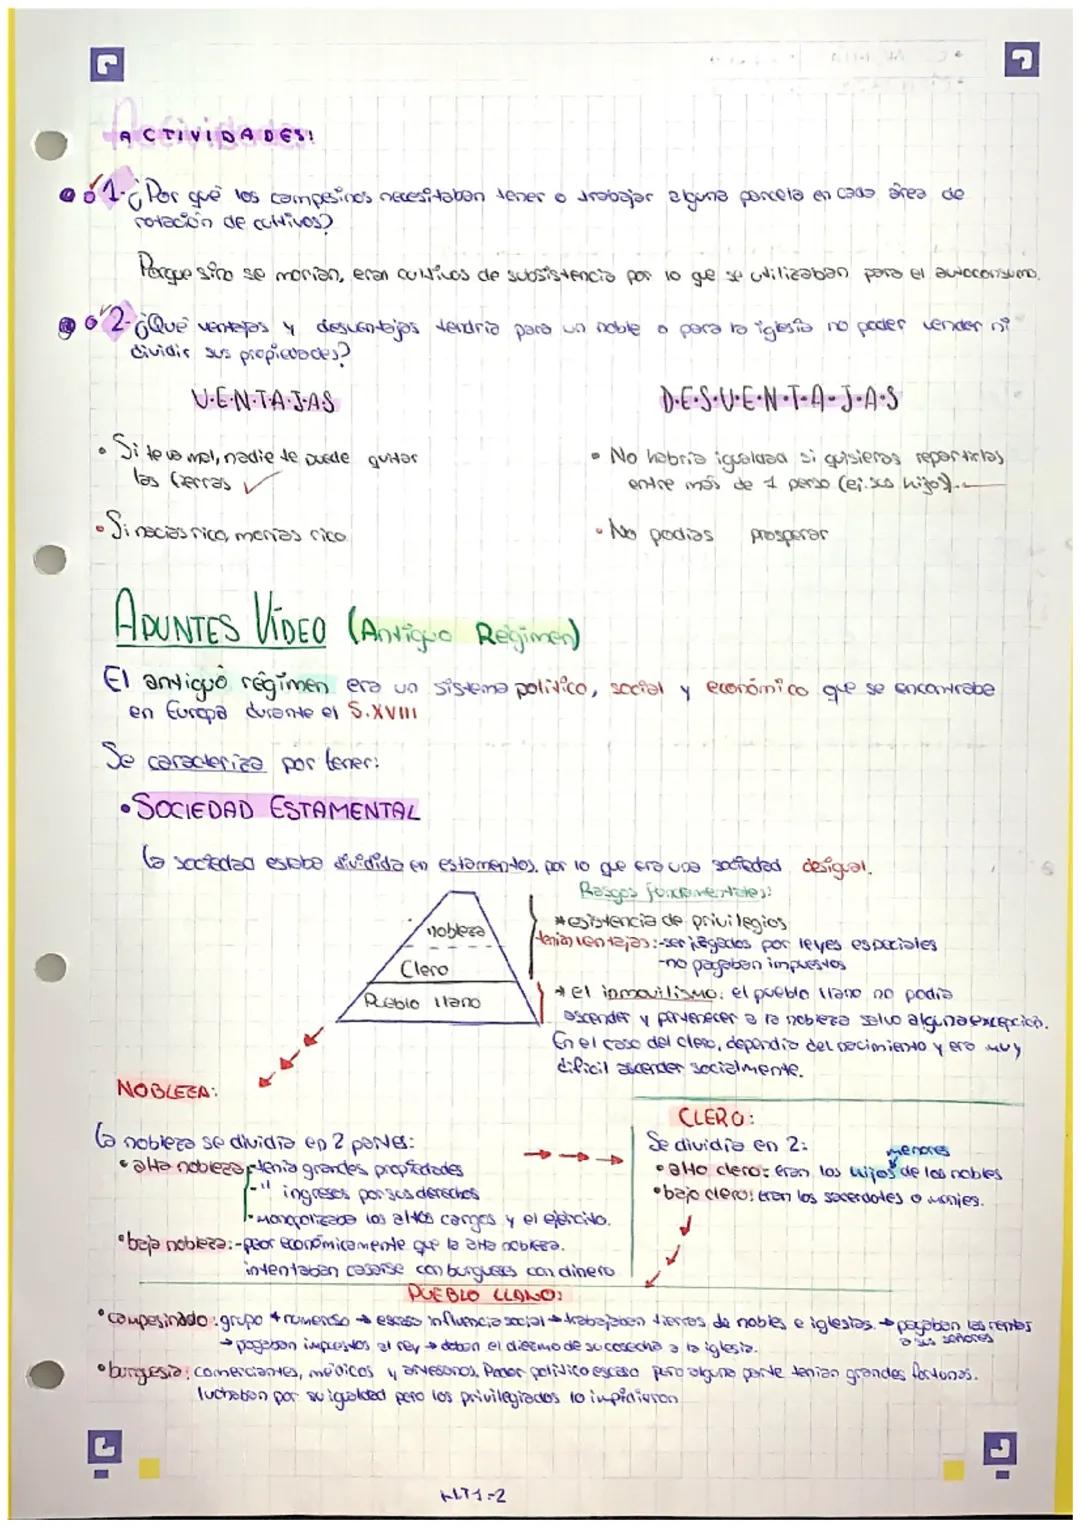 ACTIVIDADES:
1-¿Por qué los campesinos necesitaban tener o trabajar alguna parcela en cada área de
rotación de cultivos?
Porque sino se morían, eran cultivos de subsistencia por lo que se utilizaban para el autoconsumo.
2-¿Qué ventajas y desventajas tendría para un noble o para la iglesia no poder vender ni
dividir sus propiedades?
V·E·N·T·A·J·A·S
D·E·S·V·E·N·T·A·J·A·S
• Si te va mal, nadie te puede quitar
las tierras
• No habría igualdad si quisieras repartirlas
entre más de 1 perso (ej. sus hijos).
• Si nacías rico, morías rico
• No podías prosperar
APUNTES VÍDEO (Antiguo Régimen)
El antiguo régimen era un sistema político, social y económico que se encontraba
en Europa durante el S.XVIII
Se caracteriza por tener:
• SOCIEDAD ESTAMENTAL
La sociedad estaba dividida en estamentos, por lo que era una sociedad desigual.
Rasgos fundamentales:
nobleza
Clero
Pueblo llano
*existencia de privilegios
tenían ventajas:-ser juzgados por leyes especiales
-no pagaban impuestos
* el inmovilismo: el pueblo llano no podía
ascender y pertenecer a la nobleza salvo alguna excepción.
En el caso del clero, dependía del nacimiento y era muy
difícil ascender socialmente.
NOBLEZA:
La nobleza se dividía en 2 partes:
• alta nobleza -tenía grandes propiedades
-" ingresos por sus derechos
-Monopolizaba los altos cargos y el ejército.
• baja nobleza:-peor económicamente que la alta nobleza.
intentaban casarse con burgueses con dinero
CLERO:
Se dividía en 2:
menores
• alto clero: Eran los hijos de los nobles
• bajo clero: Eran los sacerdotes o monjes.
PUEBLO LLANO:
• campesinado: grupo + numeroso → escasa influencia social → trabajaban tierras de nobles e iglesias. → pagaban las rentas
a sus señores
→ pagaban impuestos al rey → daban el diezmo de su cosecha a la iglesia.
• burguesía: comerciantes, médicos y artesanos. Poder político escaso pero alguna parte tenían grandes fortunas.
luchaban por su igualdad pero los privilegiados lo impidieron